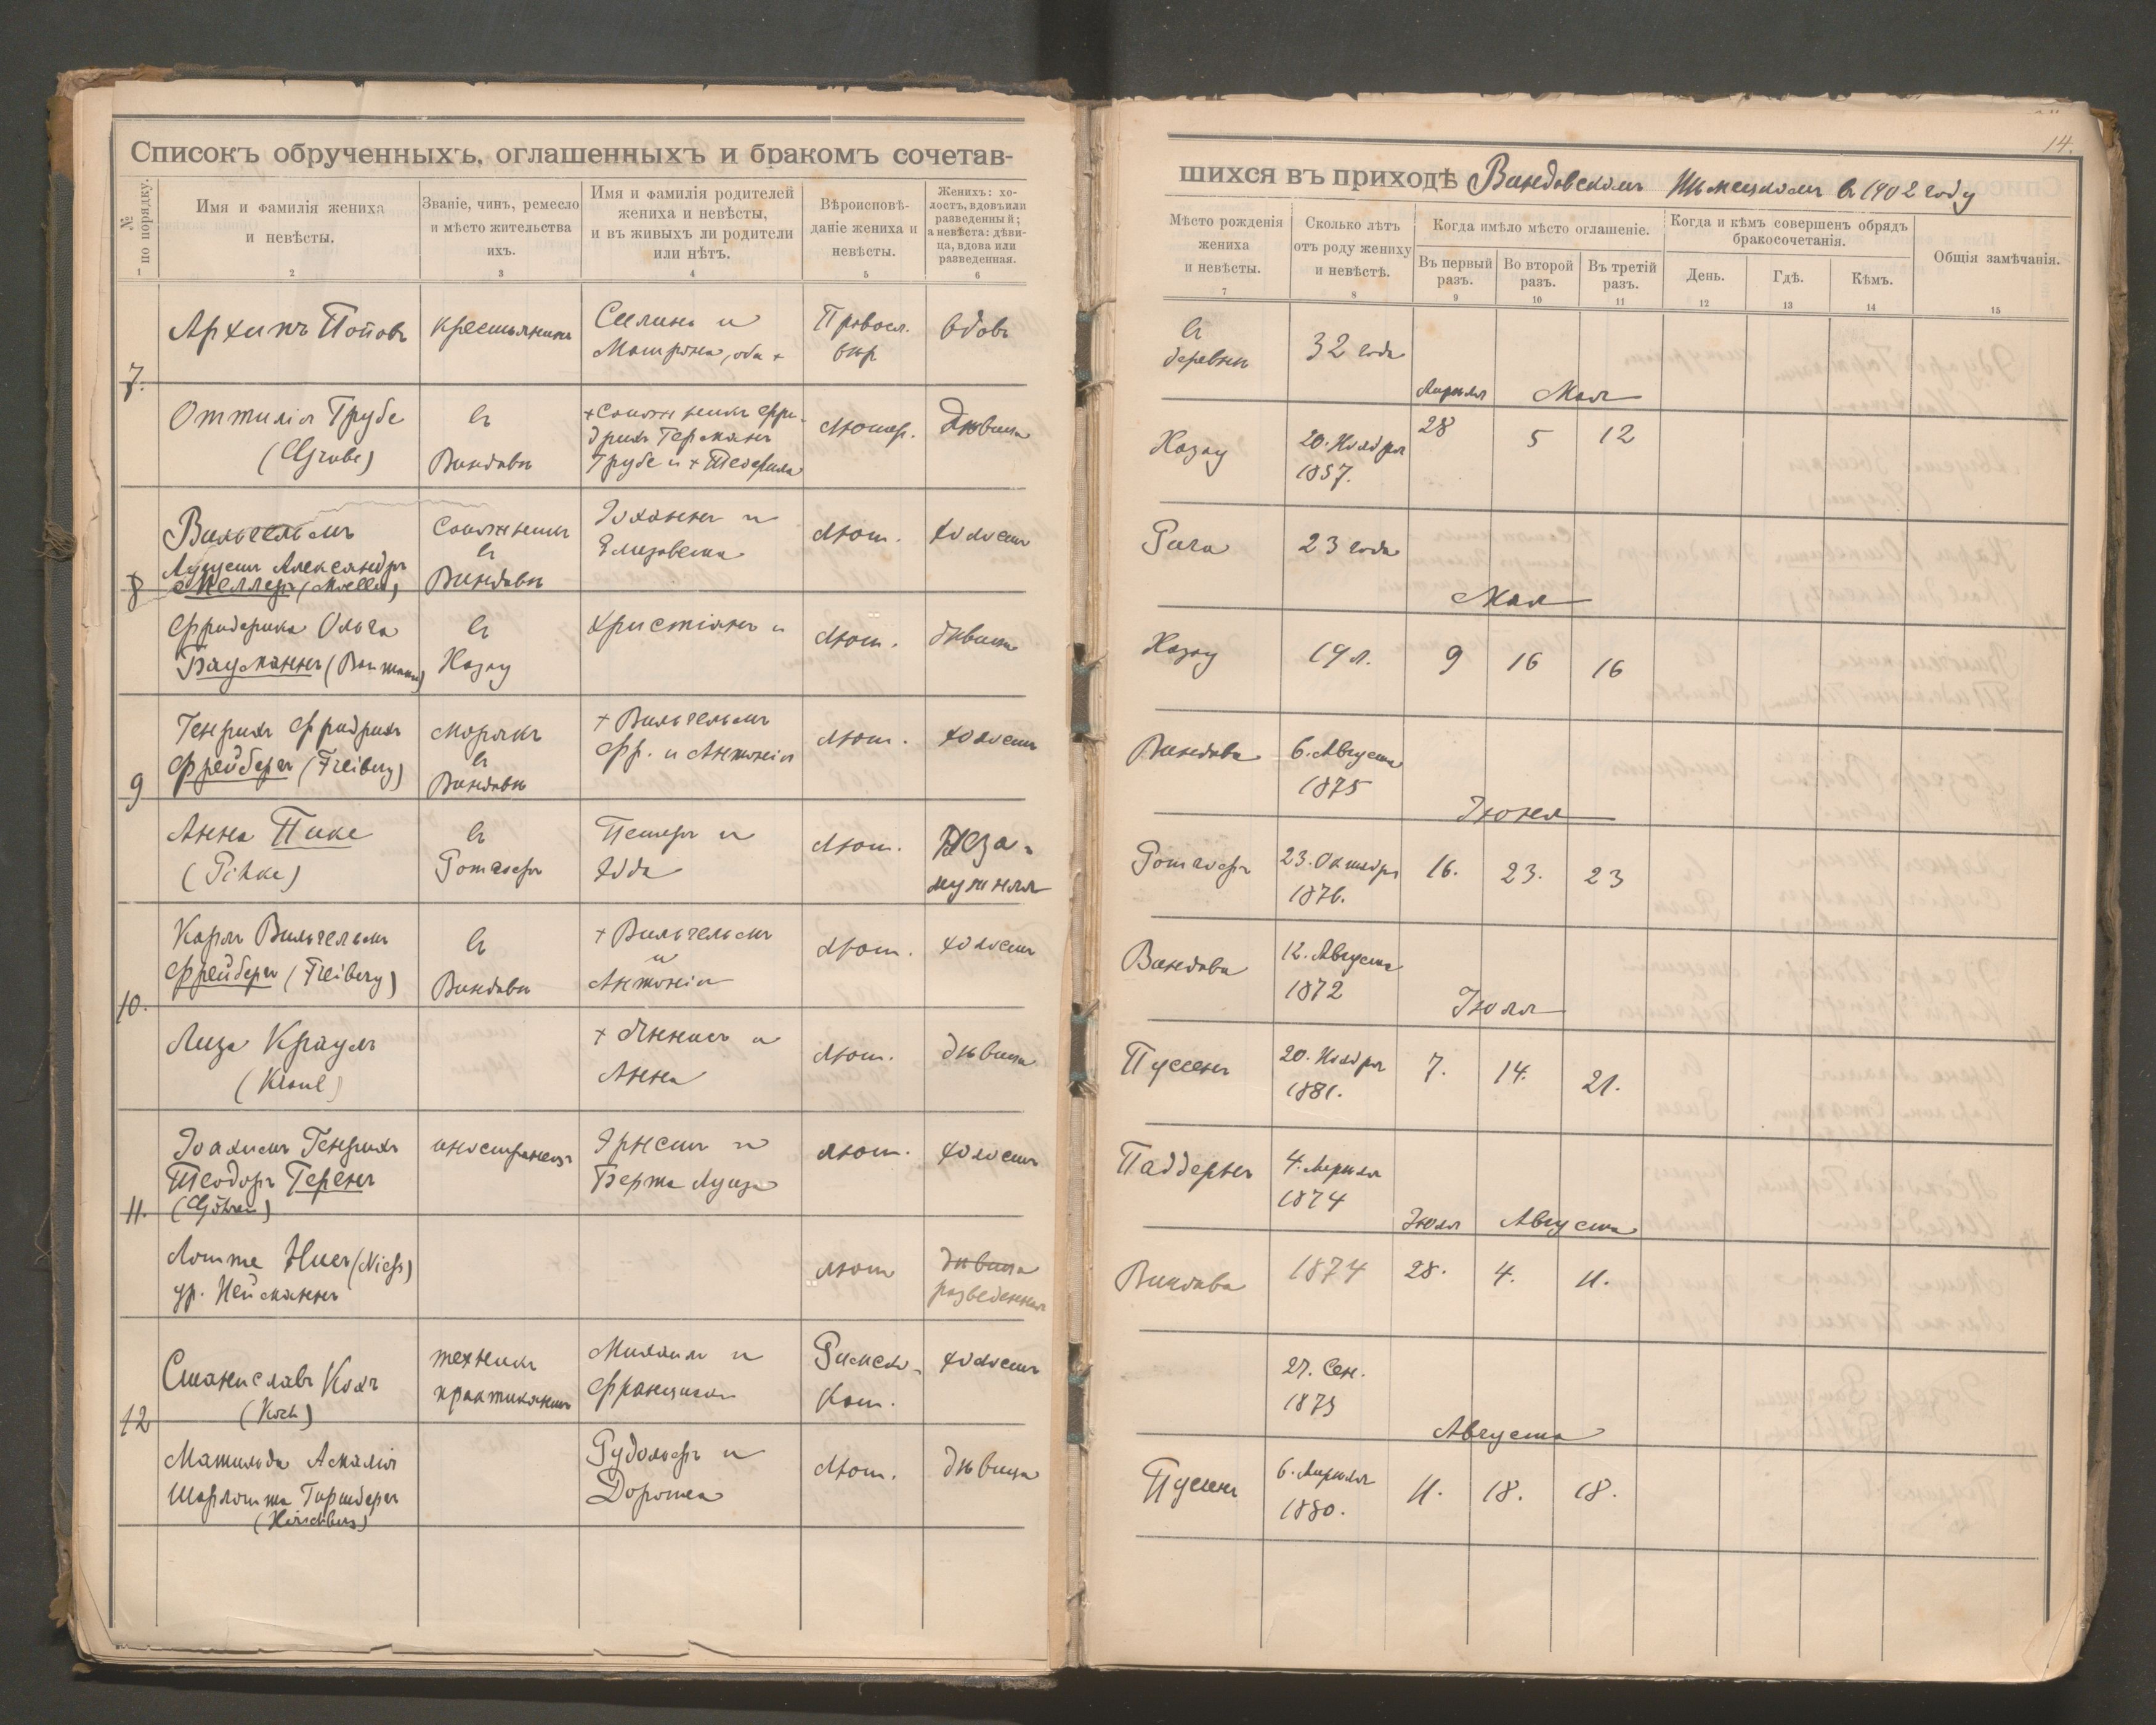 Списокъ обрученныхъ, оглашенныхъ и бракомъ сочетав-
№ по порядку.
Имя и фамилія жениха
и невѣсты.
Званіе, чинъ, ремесло
и мѣсто жительства
ихъ.
Имя и фамилія родителей
жениха и невѣсты,
и въ живыхъ ли родители
или нѣтъ.
Вѣроисповѣ-
даніе жениха и
невѣсты.
Женихъ: хо-
лостъ, вдовъ или
разведенный;
а невѣста: дѣви-
ца, вдова или
разведенная.
1 2 3 4 5 6
7.
Архипъ Поповъ
крестьянинъ
и
Матрена, оба +
Правосл.
вѣр
вдовъ
Оттилія Грубе
(Grube)
въ
Виндавѣ
+ Сапожникъ Фри-
дрихъ Германъ
Грубе и +
Лютер.
дѣвица
8
Вильгельмъ
Августъ Александръ
Меллеръ (Moeller)
Сапожникъ
въ
Виндавѣ
Іоганнъ и
Елизавета
Лют.
холостъ
Фридерика Ольга
Бауманнъ (Baumann)
въ
Хазау
Христіанъ и
Лют.
дѣвица
9
Генрихъ Фридрихъ
Фрейбергъ (Freiberg)
морякъ
въ
Виндавѣ
+ Вильгельмъ
Фр. и Антонія
Лют.
холостъ
Анна Пике
(Pihke)
въ
Ротгофъ
Петеръ и
Лют.
Неза-
мужняя
10.
Карлъ Вильгельмъ
Фрейбергъ (Freiberg)
въ
Виндавѣ
+ Вильгельмъ
и
Антонія
Лют.
холостъ
Лиза Крауль
(Kraul)
+ Яннисъ и
Анна
Лют.
дѣвица
11.
Іоахимъ Генрихъ
Теодоръ Геренъ
(Göhren)
иностранецъ
Эрнстъ и
Берта Луиза
Лют.
холостъ
Лотте Нисъ (Niess)
ур. Нейманнъ
лют
дѣвица
разведенная
12
Станиславъ Кохъ
(Koch)
техникъ
практикантъ
Михаилъ и
Франциска
Римско-
Кат.
холостъ
Матильда Амалія
Шарлотта Гиршбергъ
(Hirschberg)
Рудольфъ и
Доротея
Лют.
дѣвица
14.
шихся въ приходѣ Виндавскомъ Нѣмецкомъ въ 1902 году
Мѣсто рожденія
жениха
и невѣсты.
Сколько лѣтъ
отъ роду жениху
и невѣстѣ.
Когда имѣло мѣсто оглашеніе.
Въ первый
разъ.
Во второй
разъ.
Въ третій
разъ.
Когда и кѣмъ совершенъ обрядъ
бракосочетанія.
День.
Гдѣ.
Кѣмъ.
Общія замѣчанія.
7 8 9 10 11 12 13 14 15
въ
деревнѣ
32 года
Апрѣля Мая
Хазау
20. Ноября
1857.
28 5 12
Рига
23 года
Мая
Хазау
19 л.
9 16 16
Виндава
6. Августа
1875
Іюня
Ротгофъ
23. Октября
1876.
16. 23. 23
Виндава
12. Августа
1872
Іюля
Пуссенъ
20. Ноября
1881.
7. 14. 21.
Паддернъ
4. Апрѣля
1874
Іюля Августа
Виндава
1874
28. 4. 11.
27. Сен.
1873
Августа
Пусенъ
6. Апрѣля
1880.
11. 18. 18.